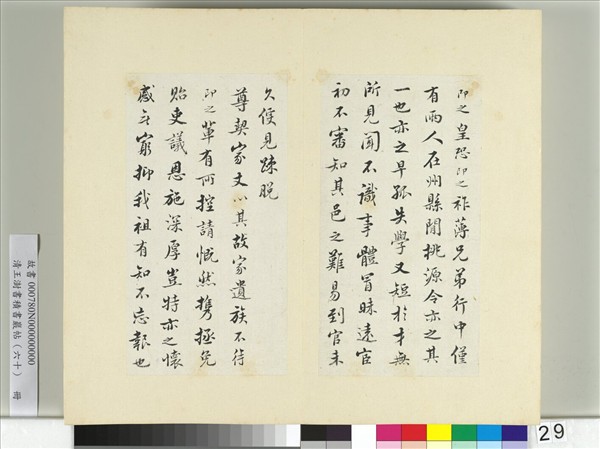 即之皇恐即之祚薄兄弟行中僅
有兩人在州縣間桃源令亦之其
一也亦之早孤失學又短於才無
所見聞不識事體冒昧遠宦
初不審知其邑之難易到官未
久便見疎脫
尊契家丈以其故家遺族不待
即之輩有所控請慨然攜拯免
貽吏議恩施深厚豈特亦之懷
感無窮抑我祖有知不忘報也
故書000780N000000000
清王澍書積書巖帖(六十) 冊
29